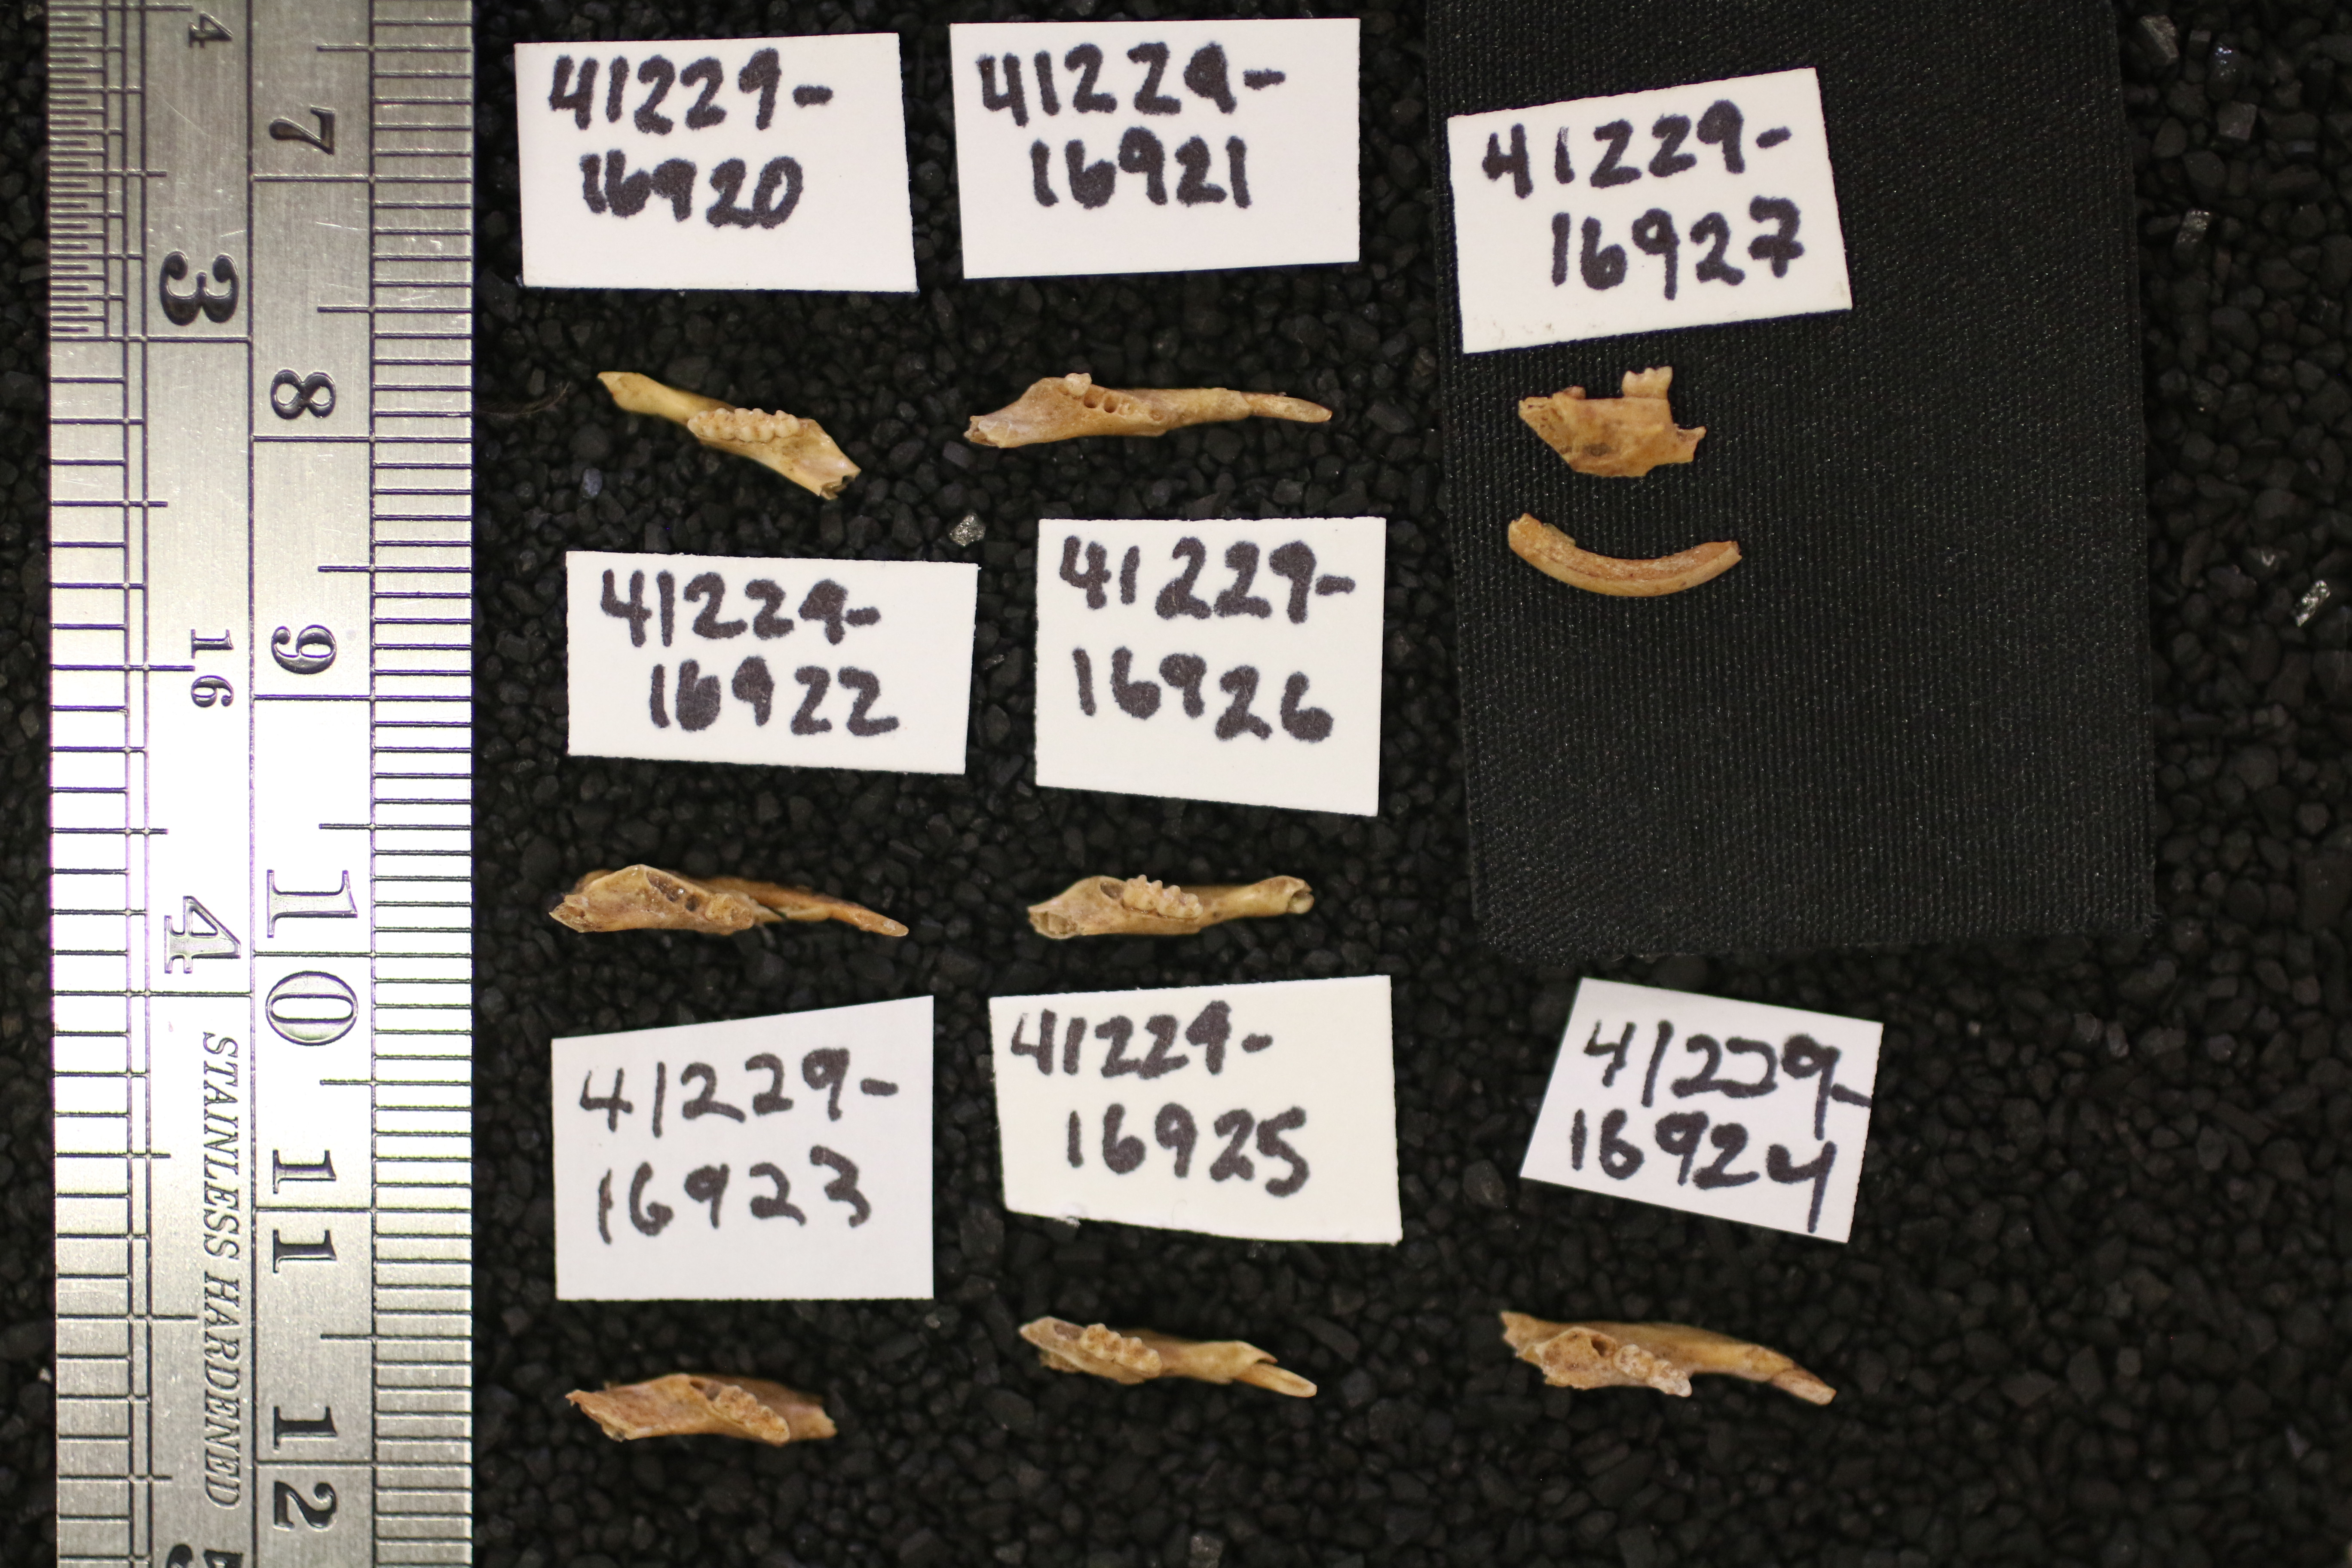 4
3
16
4
STAINLESS HARDENED
7
8
9
10
11
12
41229-
16920
41229-
16921
41229-
16927
41229-
16922
41229-
16926
41229-
16923
41229-
16925
41229-
16924